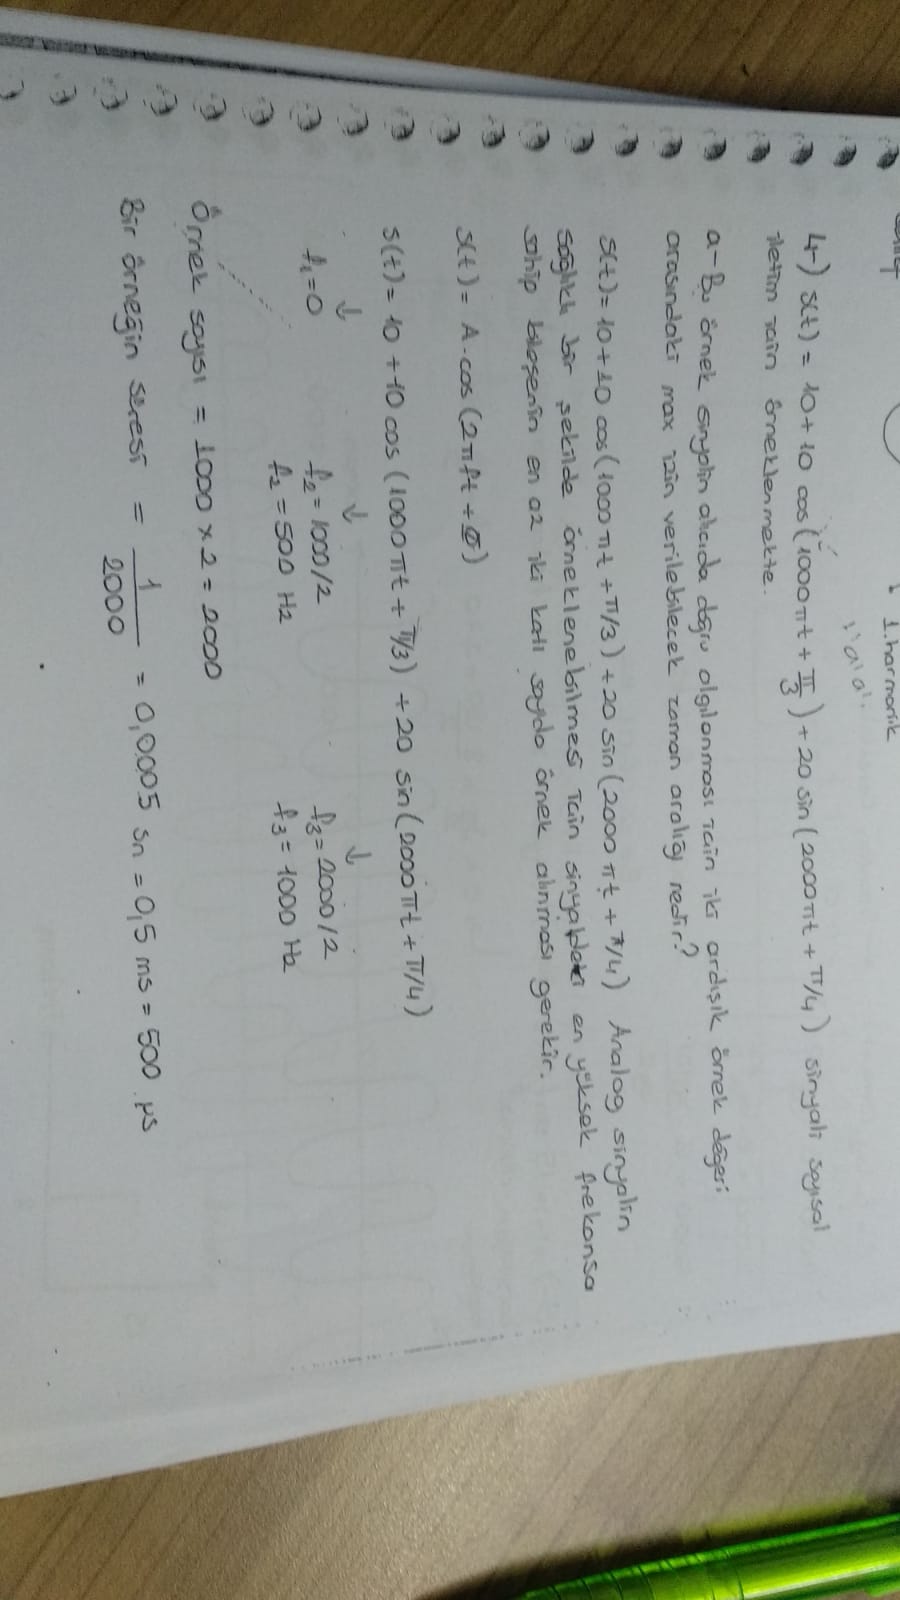 1. harmonik
4-) s(t) = 10+10 cos(1000πt + π/3) + 20 sin(2000πt + π/4) sinyali sayısal
iletim için örneklenmekte.
a- Bu örnek sinyalin alıcıda doğru algılanması için iki ardışık örnek değeri
arasındaki max izin verilebilecek zaman aralığı nedir?
s(t) = 10+10 cos(1000πt + π/3) + 20 sin(2000πt + π/4) Analog sinyalin
sağlıklı bir şekilde örneklenebilmesi için sinyaldeki en yüksek frekansa
sahip bileşenin en az iki katı sayıda örnek alınması gerekir.
s(t) = A.cos(2πft + Φ)
s(t) = 10 + 10 cos(1000πt + π/3) + 20 sin(2000πt + π/4)
↓ ↓ ↓
f₁=0 f₂=1000/2 f₃=2000/2
f₂=500 Hz f₃=1000 Hz
Örnek sayısı = 1000 x 2 = 2000
Bir örneğin süresi = 1/2000 = 0,0005 sn = 0,5 ms = 500 μs